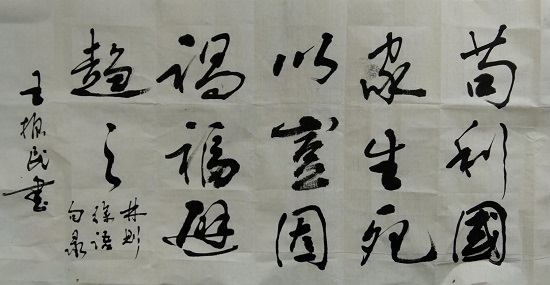 苟利國
家生死
以豈因
禍福避
趨之
林則
徐語
句录
王振民書